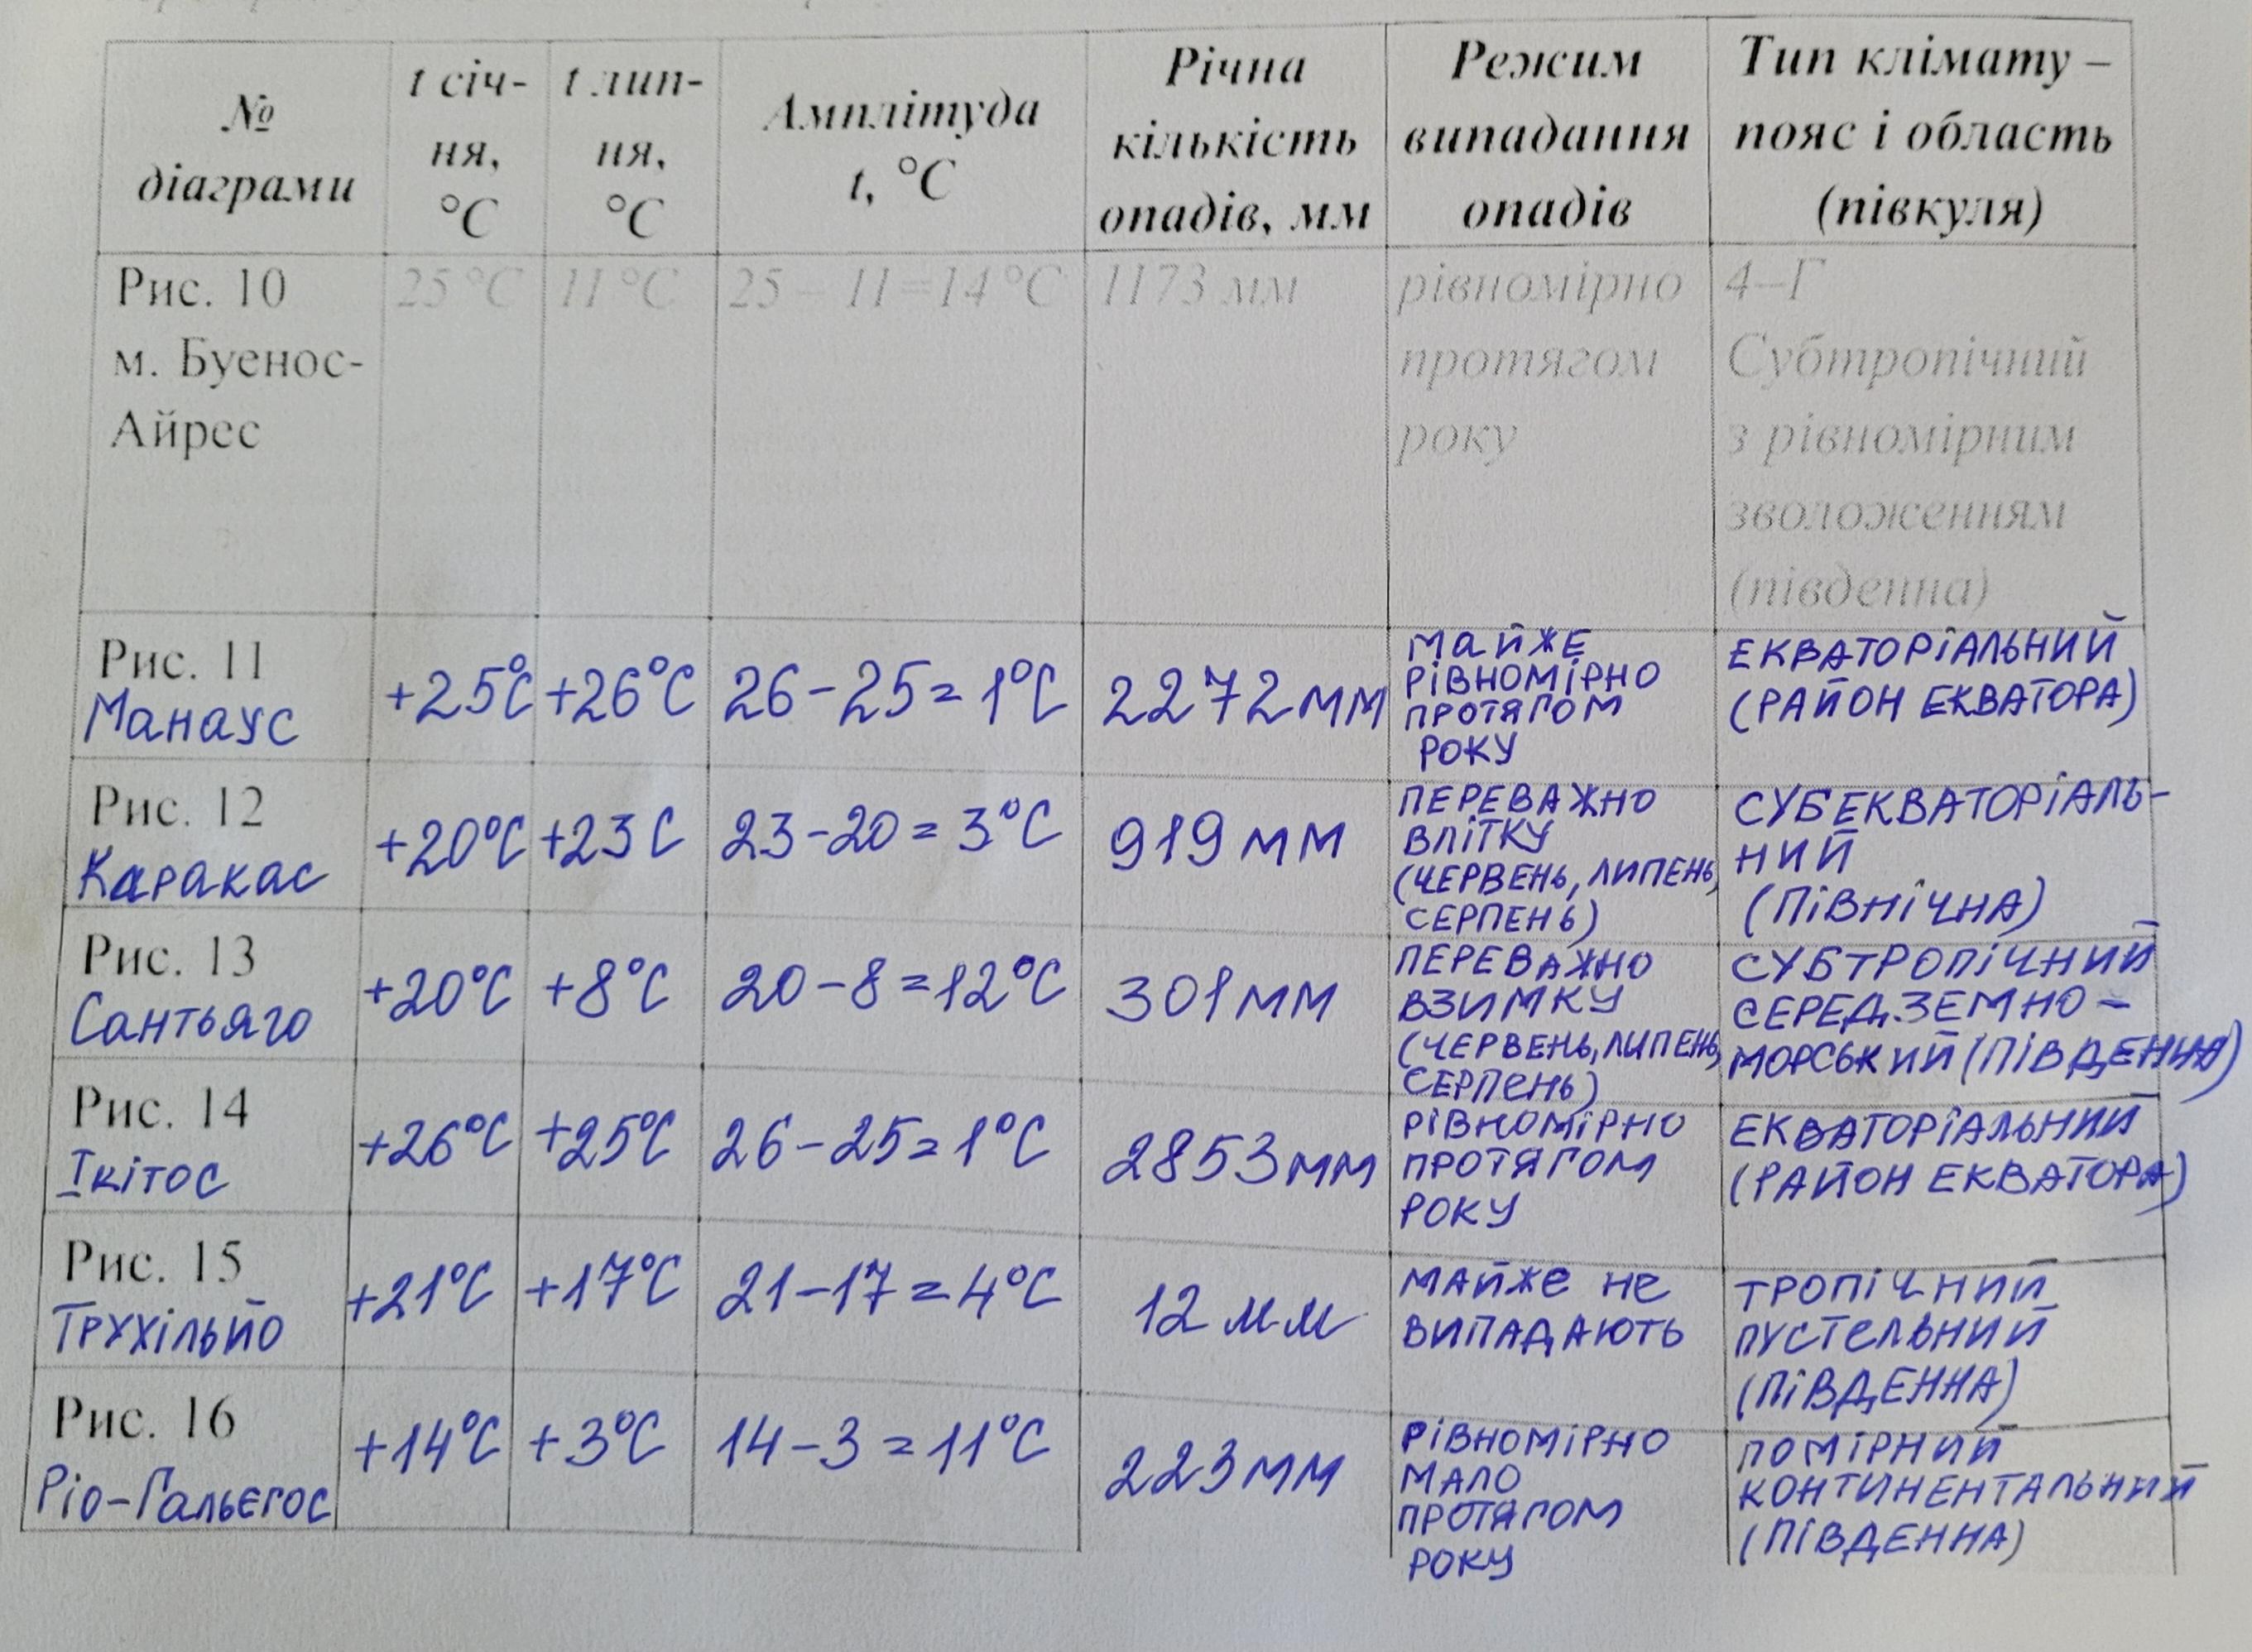 №
діаграми
t січ-
ня,
°C
t лип-
ня,
°C
Амплітуда
t, °C
Річна
кількість
опадів, мм
Режим
випадання
опадів
Тип клімату –
пояс і область
(півкуля)
Рис. 10
м. Буенос-
Айрес
25°C
11°C
25 – 11=14°C
1173 мм
рівномірно
протягом
року
4–Г
Субтропічний
з рівномірним
зволоженням
(південна)
Рис. 11
Манаус
+25°C
+26°C
26-25=1°C
2272мм
майже
рівномірно
протягом
року
екваторіальний
(район екватора)
Рис. 12
Каракас
+20°C
+23C
23-20=3°C
919 мм
переважно
влітку
(червень, липень,
серпень)
субекваторіаль-
ний
(північна)
Рис. 13
Сантьяго
+20°C
+8°C
20-8=12°C
301мм
переважно
взимку
(червень, липень,
серпень)
субтропічний
середземно-
морський (південна)
Рис. 14
Ікітос
+26°C
+25°C
26-25=1°C
2853мм
рівномірно
протягом
року
екваторіальний
(район екватора)
Рис. 15
Трухільйо
+21°C
+17°C
21-17=4°C
12 мм
майже не
випадають
тропічний
пустельний
(південна)
Рис. 16
Ріо-Гальєгос
+14°C
+3°C
14-3=11°C
223мм
рівномірно
мало
протягом
року
помірний
континентальний
(південна)